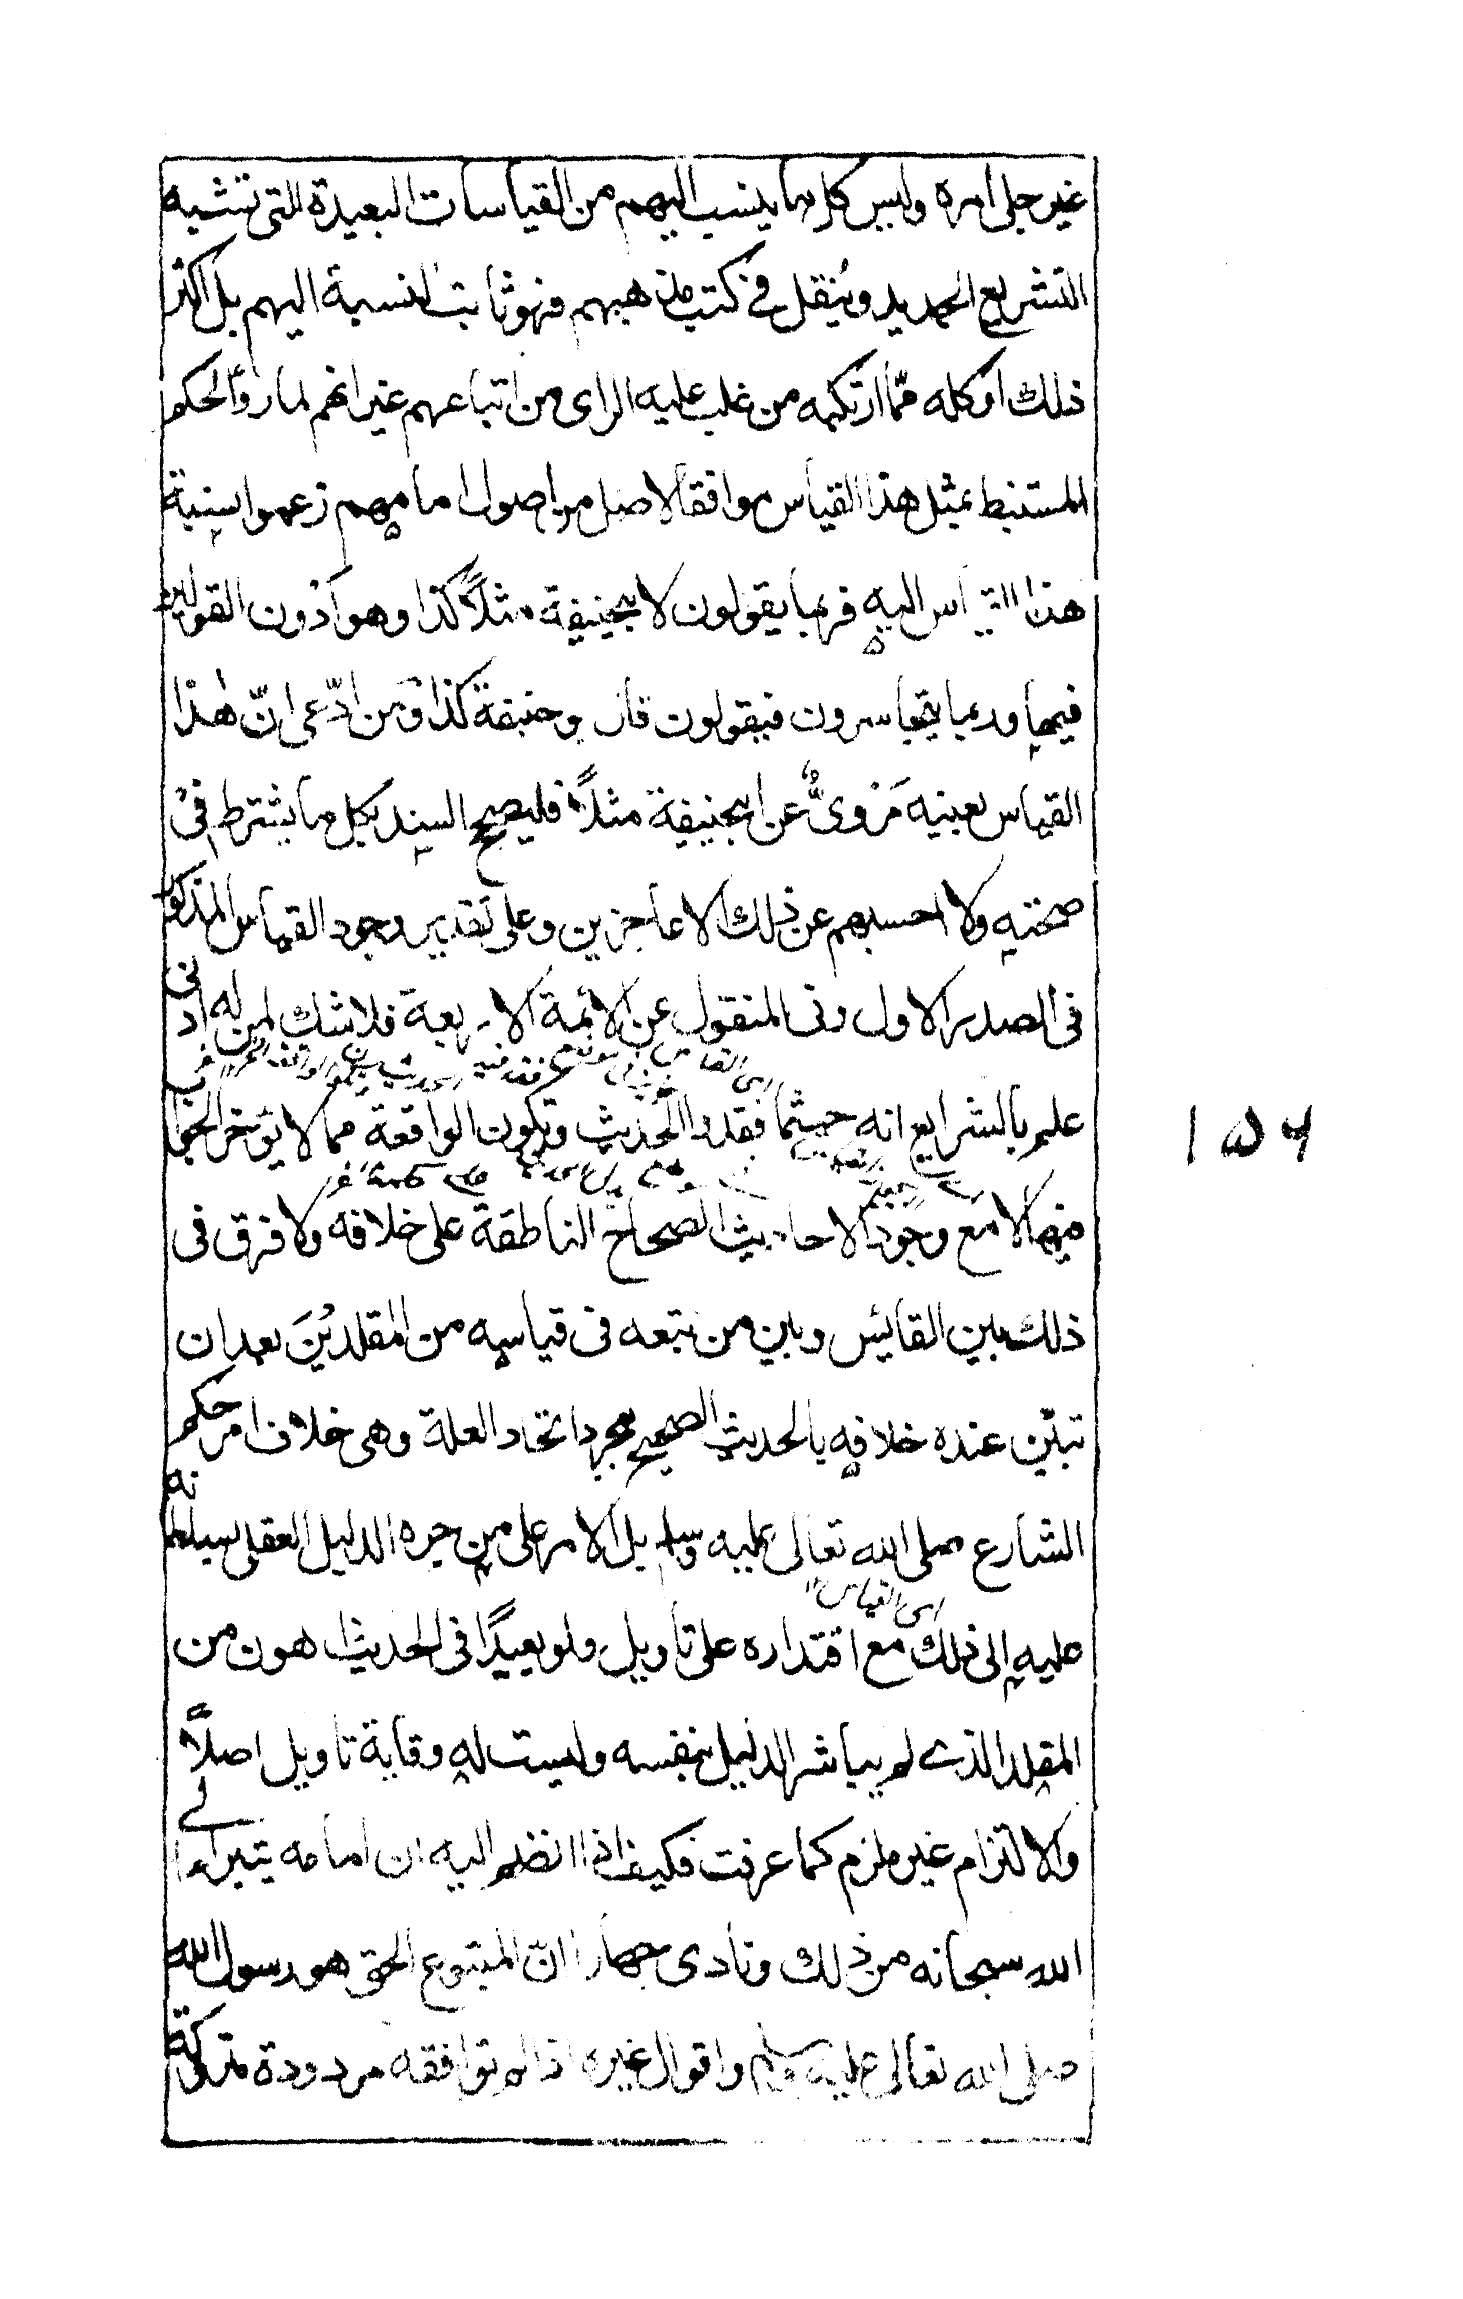 غير جلى امره وليس كل ما ينسب اليهم من القياسات البعيدة التى تشبه
التشريع الجديد وينقل فى كتب مذهبهم فهو ثابت النسبة اليهم بل اكثر
ذلك او كله ممّا ارتكبه من غلب عليه الراى من اتباعهم غير انهم لما راوا الحكم
المستنبط بمثل هذا القياس موافقا لاصل من اصول امامهم زعموا نسبة
هذا القياس اليه فربما يقولون لابيحنيفة مثلاً كذا وهو ادْون القولين
فيهما وربما يتجاسرون فيقولون قال بوحنيفة كذا ومن ادّعى انّ هٰذا
القياس بعينه مَروىٌّ عن ابيحنيفة مثلاً فليصحح السند بكل ما يشترط فى
صحته ولا احسبهم عن ذلك الا عاجزين وعلى تقدير وجود القياس المذكور
فى الصدر الاول وفى المنقول عن الائمة الاربعة فلا شك لمن له ادنى
علم بالشرايع انه حيثما فقدوا الحديث وتكون الواقعة مما لا يؤخر الحكم
فيها لا مع وجود الاحاديث الصحاح الناطقة على خلافه ولا فرق فى
ذلك بين القائس وبين من تبعه فى قياسه من المقلدين بعد ان
تبيّن عنده خلافه بالحديث الصحيح بمجرد اتحاد العلة وهى خلاف امر حكم
الشارع صلى الله تعالى عليه وسلم بل الامر على من جره الدليل العقلى بسلطانه
اى القياس ١٢
عليه الى ذلك مع اقتداره على تاويل ولو بعيدًا فى الحديث اهون من
المقلد الذى لم يباشر الدليل بنفسه وليست له وقاية تاويل اصلاً
والالتزام غير ملزم كما عرفت فكيف اذا انضم اليه ان امامه يتبرا الى
الله سبحانه من ذلك ونادى جهارا انّ المتبوع الحق هو رسول الله
صلى الله تعالى عليه وسلم واقوال غيره اذا لم توافقه مردودة متروكة
١٥٦